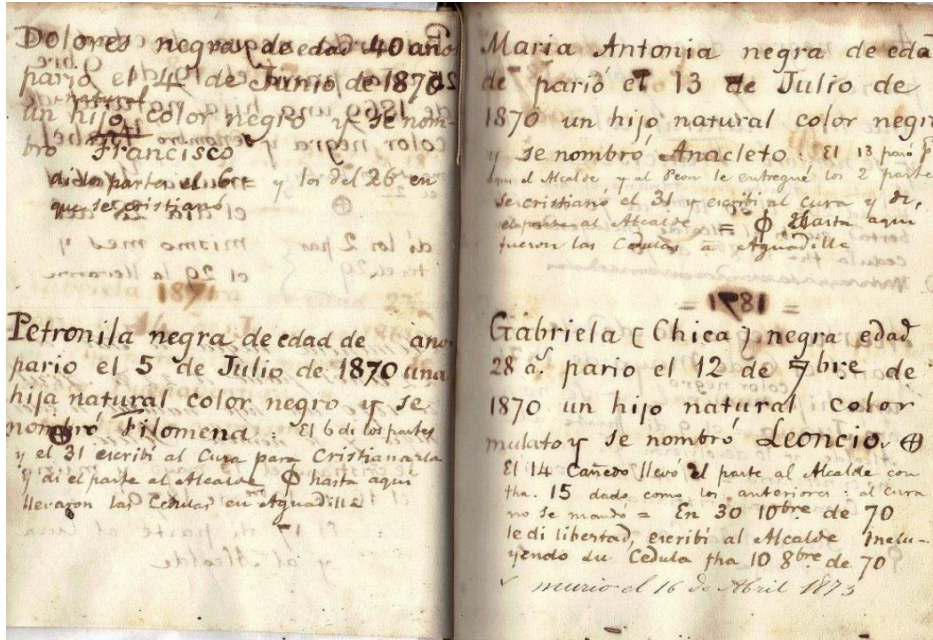 Dolores negra, de edad 40 año
parió el 4 de Junio de 1870
natural
un hijo, color negro y se nom-
bro Francisco
di los partes el 6 y los del 26 en
que se cristianó
1871
Petronila negra de edad de año
pario el 5 de Julio de 1870 una
hija natural color negro y se
nombró Filomena. El 6 di los partes
y el 31 escribí al Cura para Cristianarla
y di el parte al Alcalde hasta aqui
llevaron las Cedulas en Aguadilla
Maria Antonia negra de eda
de parió el 13 de Julio de
1870 un hijo natural color negr
y se nombró Anacleto. El 13 pasó
aqui el Alcalde y al Peon le entregué los 2 parte
se cristianó el 31 y escribi al cura y di,
el parte al Alcalde = Hasta aqui
fueron las Cedulas a Aguadilla
= 1871 =
Gabriela (Chica) negra edad
28 a.s pario el 12 de 7bre de
1870 un hijo natural color
mulato y se nombró Leoncio.
El 14 Cañedo llevó el parte al Alcalde con
fha. 15 dado como los anteriores: al cura
no se mandó = En 30 10bre de 70
le di libertad, escribí al Alcalde inclu-
yendo su Cedula fha 10 8bre de 70
murio el 16 de Abril 1873